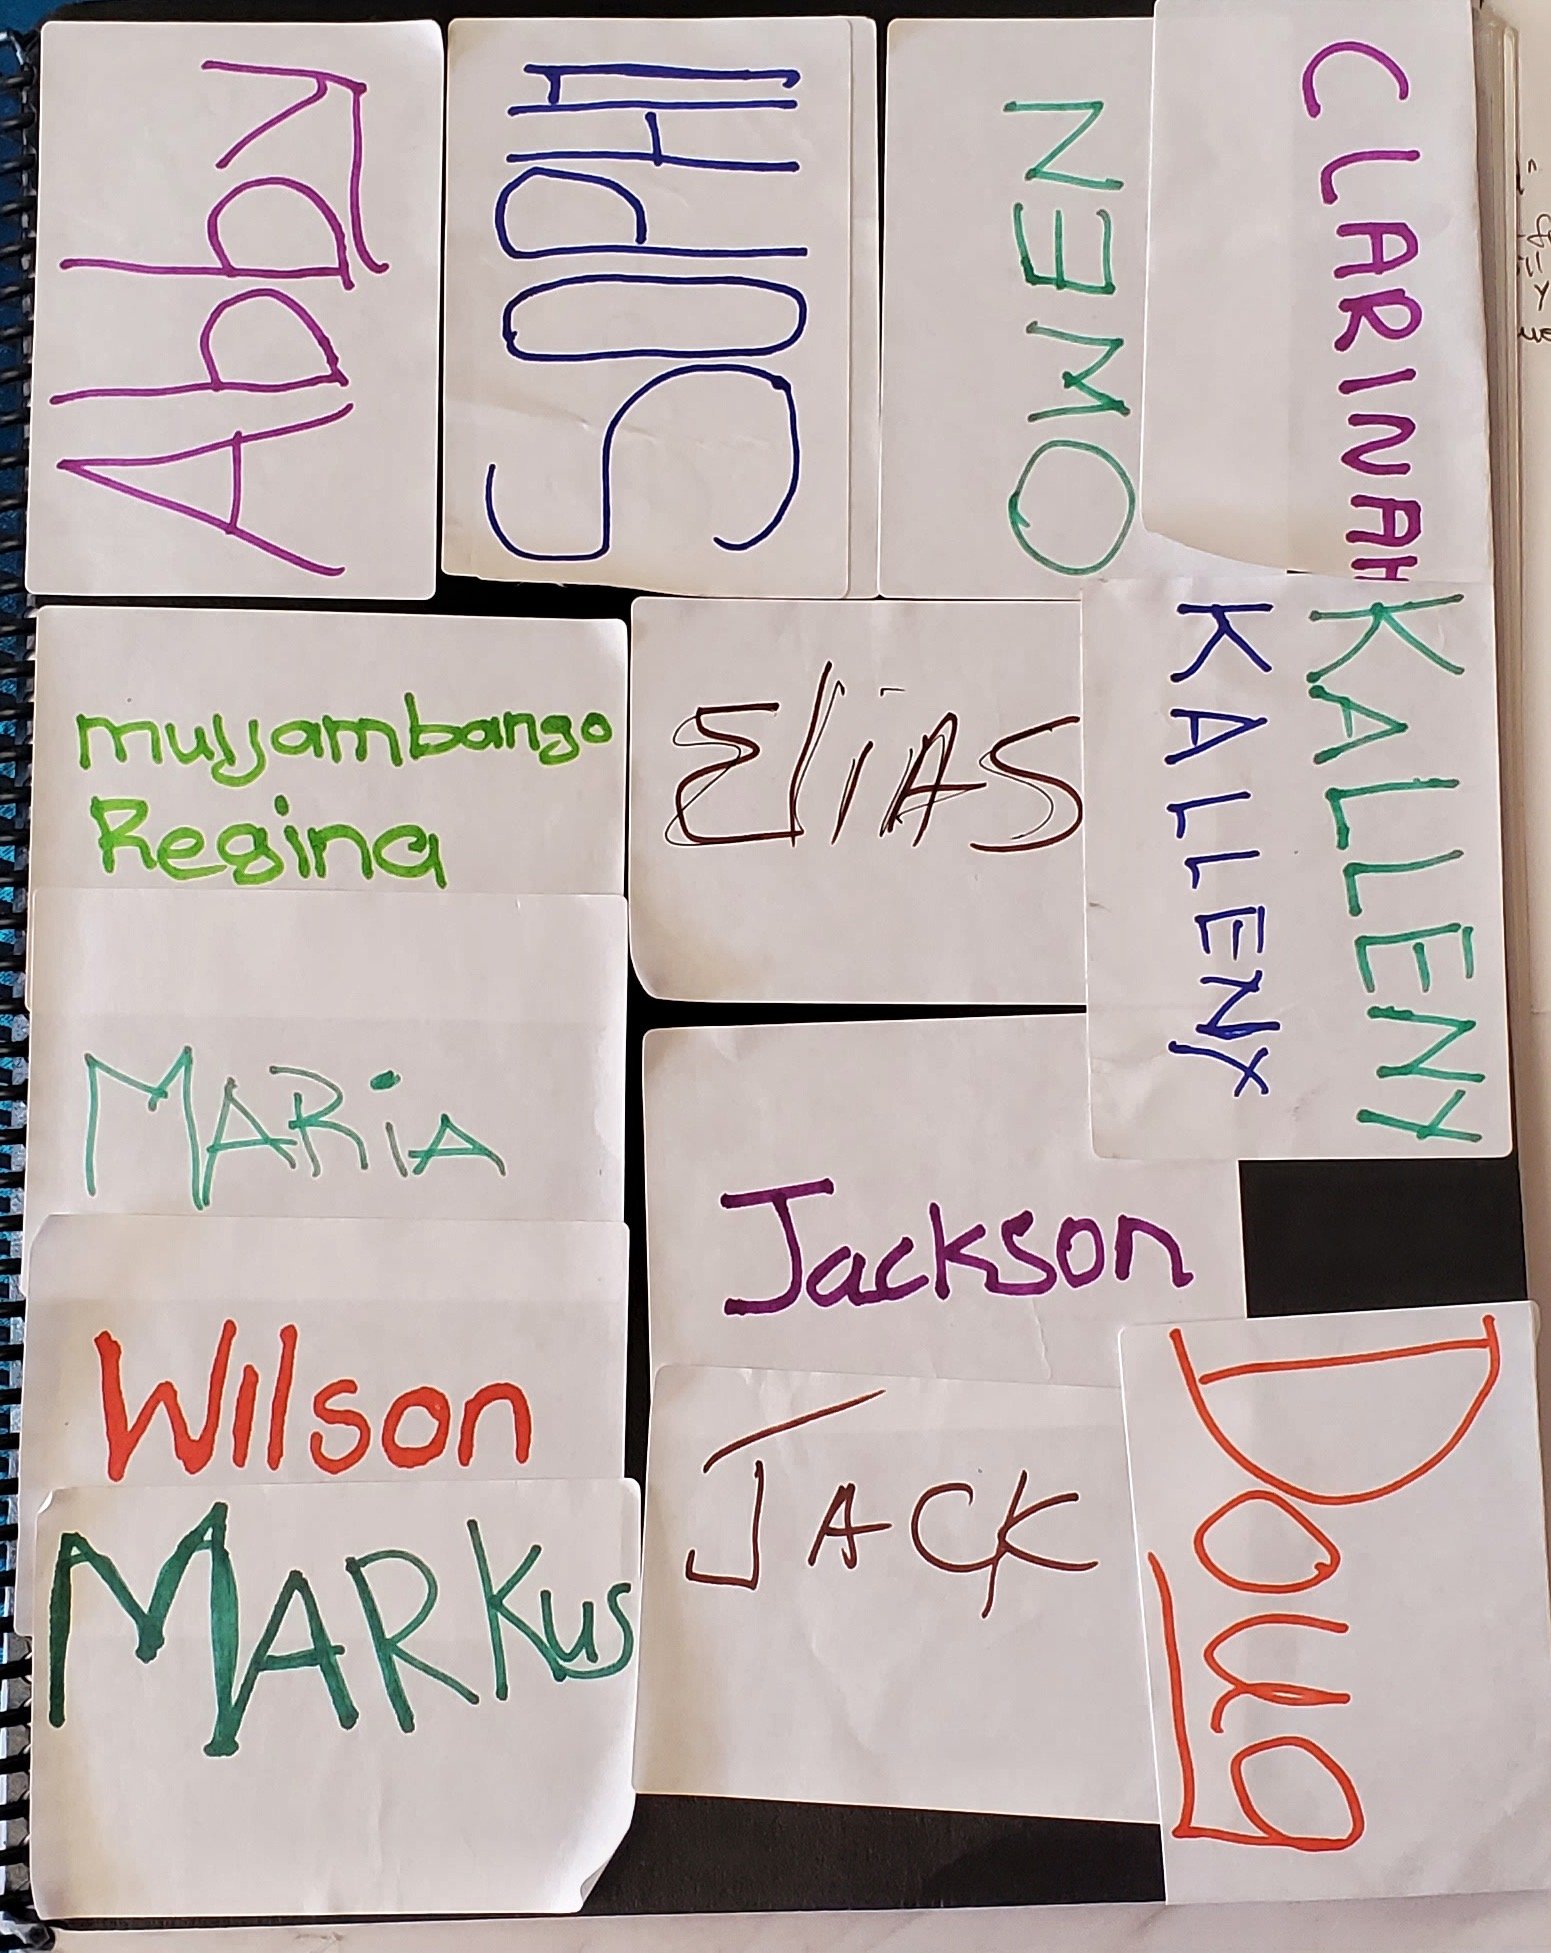 Abby
SOPHI
NEMO
CLARINAH
muyambango
Regina
ELiAS
KALLENY
KALLENY
MARiA
Jackson
Wilson
JACK
Doug
MARKus